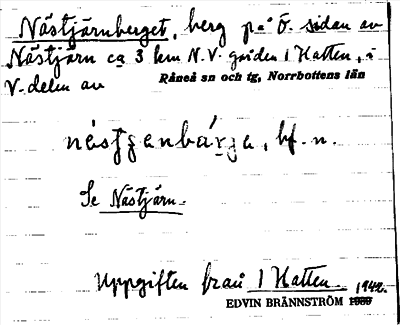 Nästjärnberget, berg på Ö. sidan av
Nästjärn ca 3 km N.V. gården 1 Hatten, i
V-delen av Råneå sn och tg, Norrbottens län
nästjanbárja, bf. n.
Se Nästjärn.
Uppgiften från 1 Hatten 1942.
EDVIN BRÄNNSTRÖM 1939